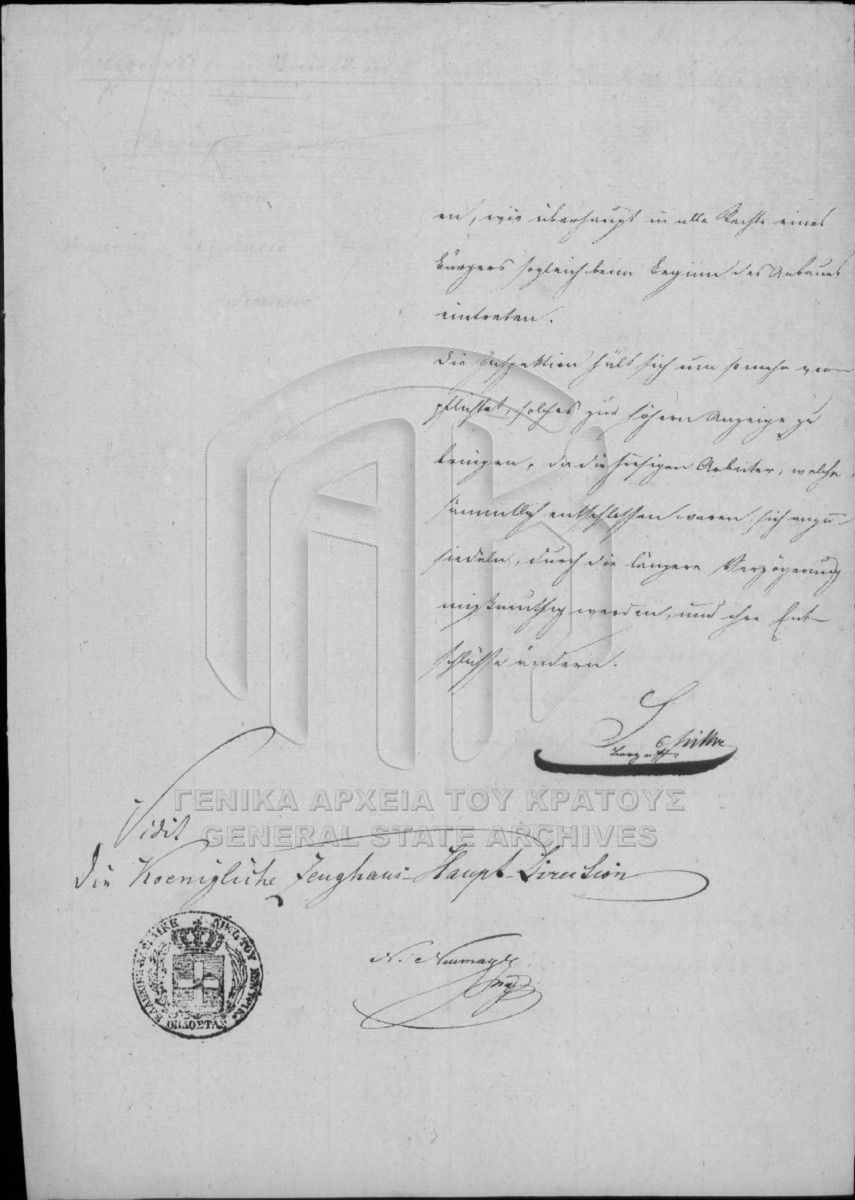 en, wie überhaupt in alle Rechte eines
Bürgers sogleich beim Beginn des Anbaues
eintreten.
Die Inspektion hält sich um so mehr ver-
pflichtet, solches zur höhern Anzeige zu
bringen, da die hiesigen Arbeiter, welche
sämmtlich entschlossen waren sich anzu-
siedeln, durch die längere Verzögerung
mißmuthig werden, und ihre Ent-
schlüsse ändern.
ΓΕΝΙΚΑ ΑΡΧΕΙΑ ΤΟΥ ΚΡΑΤΟΥΣ
GENERAL STATE ARCHIVES
Vidit
Die Koenigliche Zeughaus-Haupt-Direction